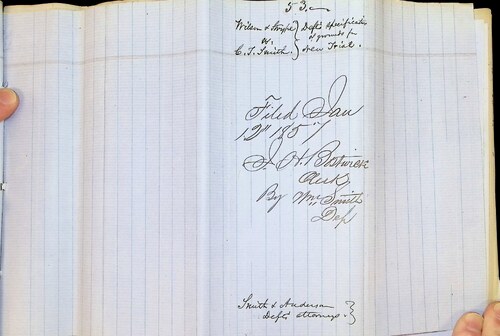 53.
Wilson & Defts specification
vs. of grounds for
C. T. Smith. New Trial.
Filed Jan
12" 1857
J. H. Bostwick
Clerk
By Wm Smith
Dep
Smith & Anderson
Defts attorneys.